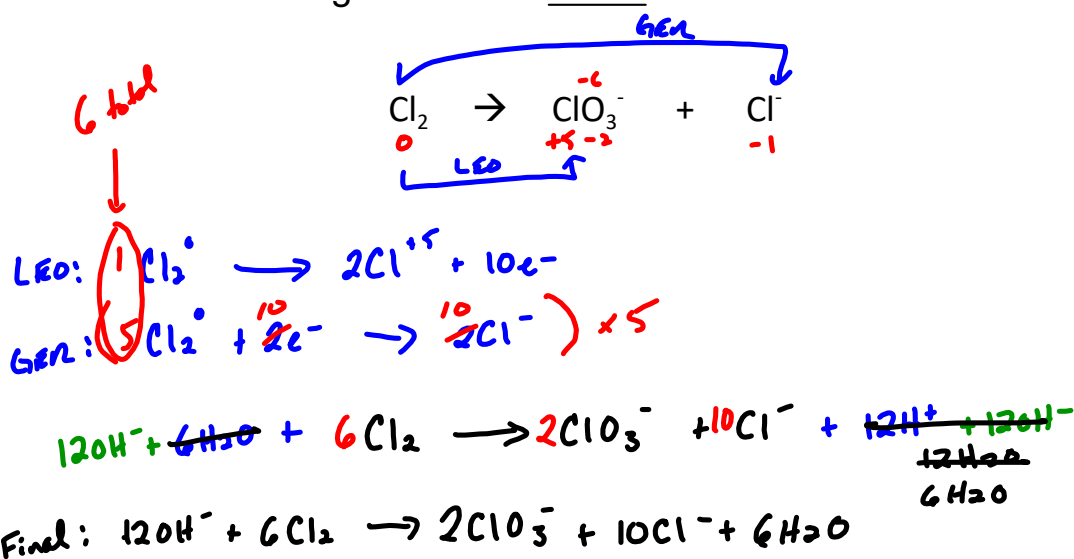 GER
6 total
-6
Cl₂ → ClO₃⁻ + Cl⁻
0 +5 -2 -1
LEO
LEO: 1 Cl₂⁰ → 2Cl⁺⁵ + 10e⁻
GER: 5 Cl₂⁰ + 2e⁻ 10 → 2Cl⁻ 10 ) x5
12OH⁻ + 6H₂O + 6Cl₂ → 2ClO₃⁻ + 10Cl⁻ + 12H⁺ + 12OH⁻
12H₂O
6H₂O
Final: 12OH⁻ + 6Cl₂ → 2ClO₃⁻ + 10Cl⁻ + 6H₂O